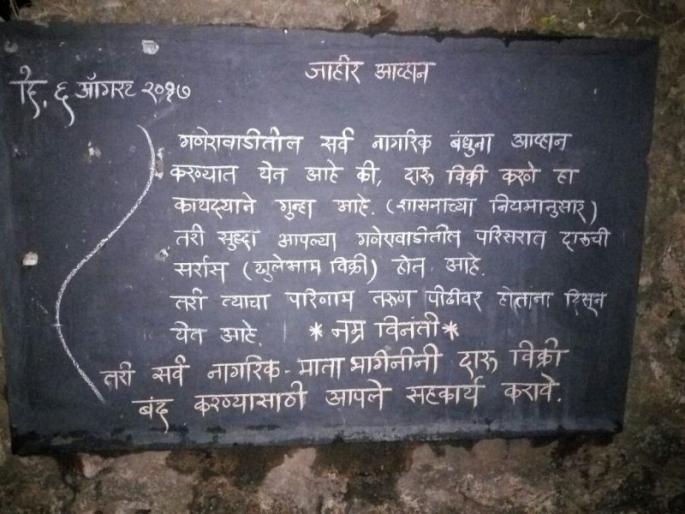 जाहीर आव्हान
दि. ६ ऑगस्ट २०१७
गणेशवाडीतील सर्व नागरिक बंधुना आव्हान
करण्यात येत आहे की, दारू विक्री करणे हा
कायद्याने गुन्हा आहे. (शासनाच्या नियमानुसार)
तरी सुद्धा आपल्या गणेशवाडीतील परिसरात दारूची
सर्रास (खुलेआम विक्री) होत आहे.
तरी त्याचा परिणाम तरुण पीढीवर होताना दिसून
येत आहे. * नम्र विनंती *
तरी सर्व नागरिक - माता भगीनीनी दारू विक्री
बंद करण्यासाठी आपले सहकार्य करावे.